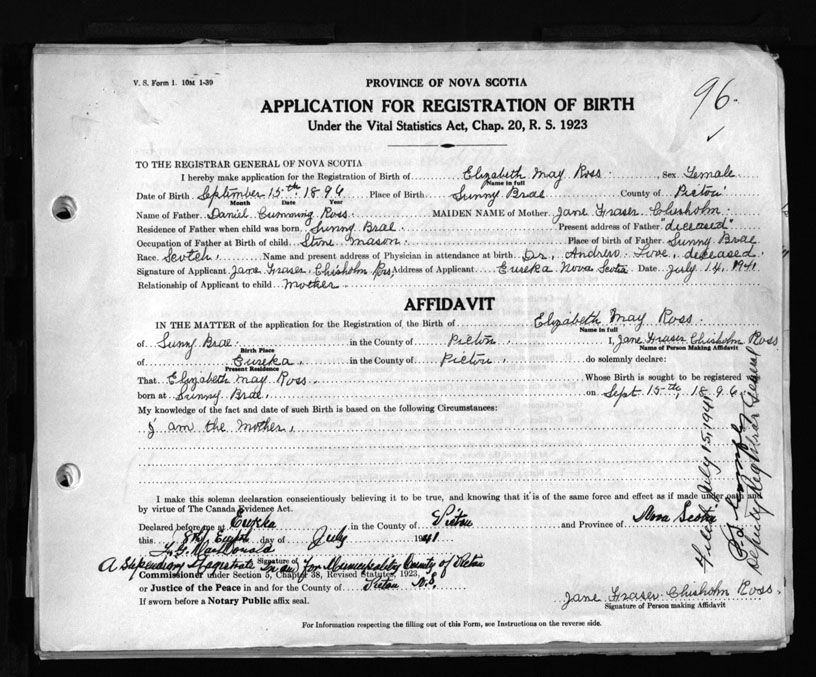 V. S. Form 1. 10M 1-39
PROVINCE OF NOVA SCOTIA
96.
APPLICATION FOR REGISTRATION OF BIRTH
Under the Vital Statistics Act, Chap. 20, R. S. 1923
TO THE REGISTRAR GENERAL OF NOVA SCOTIA
I hereby make application for the Registration of Birth of Elizabeth May Ross. Sex Female
Name in full
Date of Birth September 15th 1896 Place of Birth Sunny Brae County of Pictou
Month Date Year
Name of Father Daniel Cumming Ross. MAIDEN NAME of Mother Jane Fraser Chisholm.
Residence of Father when child was born Sunny Brae. Present address of Father "deceased"
Occupation of Father at Birth of child Stone Mason. Place of birth of Father Sunny Brae
Race Scotch. Name and present address of Physician in attendance at birth Dr. Andrew deceased.
Signature of Applicant Jane Fraser Chisholm Ross Address of Applicant Eureka Nova Scotia Date July 14, 1941
Relationship of Applicant to child Mother
AFFIDAVIT
IN THE MATTER of the application for the Registration of the Birth of Elizabeth May Ross.
Name in full
of Sunny Brae in the County of Pictou I, Jane Fraser Chisholm Ross
Birth Place Name of Person Making Affidavit
of Eureka in the County of Pictou do solemnly declare:
Present Residence
That Elizabeth May Ross. Whose Birth is sought to be registered was
born at Sunny Brae, on Sept 15th, 1896
My knowledge of the fact and date of such Birth is based on the following Circumstances:
I am the Mother.
I make this solemn declaration conscientiously believing it to be true, and knowing that it is of the same force and effect as if made under oath and
by virtue of The Canada Evidence Act.
Declared before me at Eureka in the County of Pictou and Province of Nova Scotia
this day of July 1941
MacDonald
Signature of
A Stipendiary Magistrate in and for Municipality County of Pictou
Commissioner under Section 5, Chapter 38, Revised Statutes, 1923,
or Justice of the Peace in and for the County of Pictou N.S.
If sworn before a Notary Public affix seal.
Jane Fraser Chisholm Ross.
Signature of Person making Affidavit
For Information respecting the filling out of this Form, see Instructions on the reverse side.
Filed July 15, 1941
Deputy Registrar General